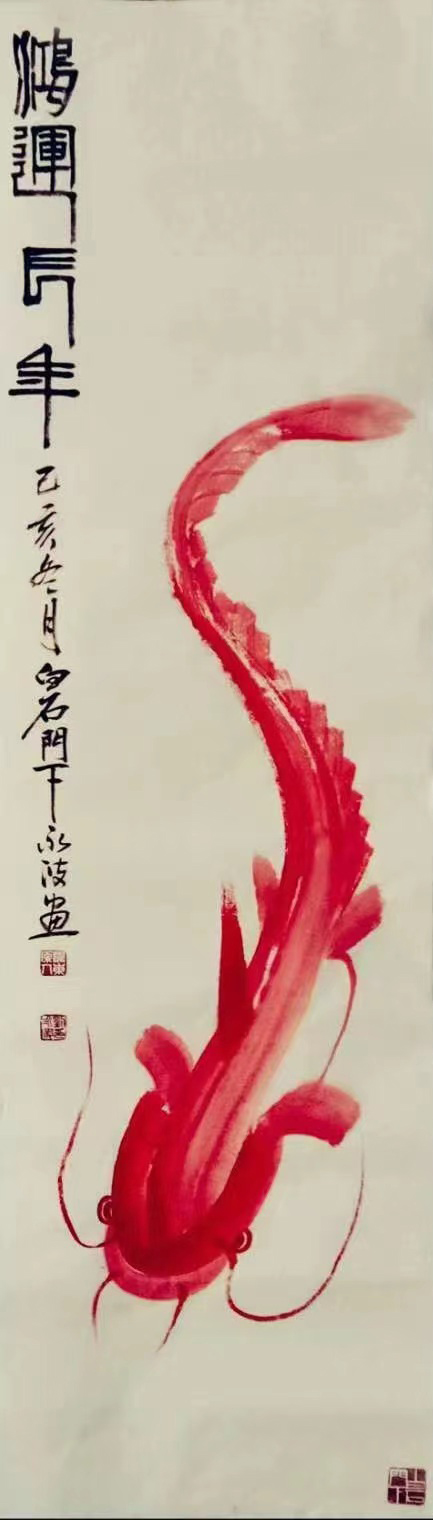 鴻運長年
己亥冬月白石門下永波画